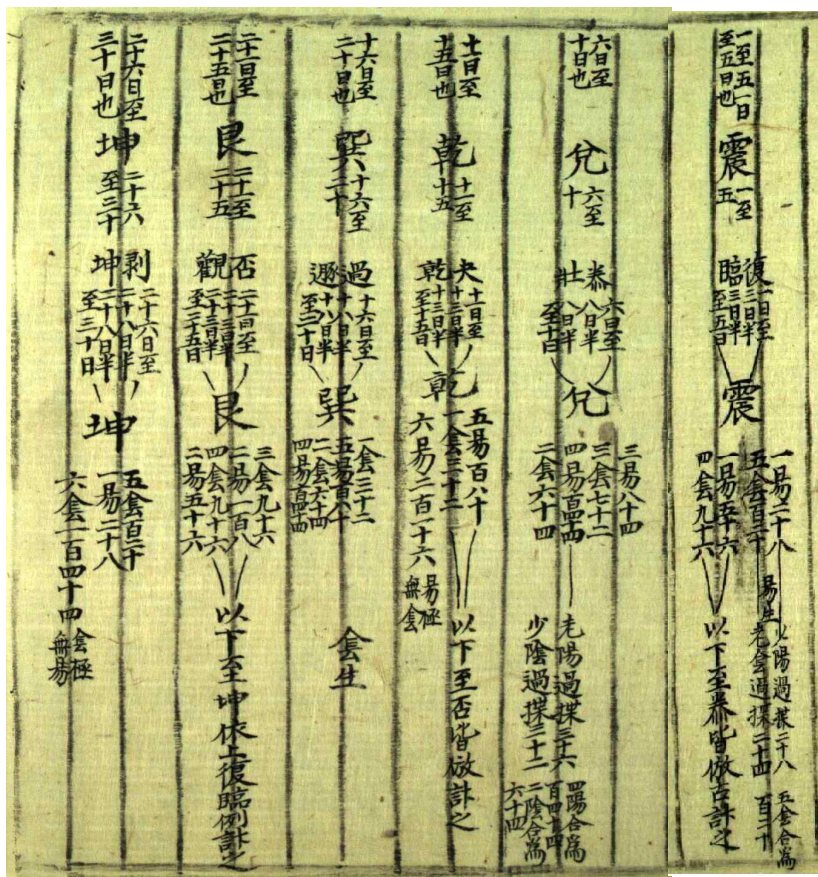 一至五一日
至五日也
震
一至
五
復
一日至
三日半
臨
三日半
至五日
震
一昜二十八
五侌百二十
一昜五十六
四侌九十六
少陽過揲二十八
昜生
老侌過揲二十四
五侌合爲
百二十
以下至泰皆倣古計之
六日至
十日也
兌
六至
十
泰
六日至
八日半
壯
八日半
至十日
兌
三昜八十四
三侌七十二
四昜百四十四
二侌六十四
老陽過揲三十六
四陽合爲
百四十四
少陰過揲三十二
二陰合爲
六十四
十日至
十五日也
乾
十一至
十五
夬
十一日至
十三日半
乾
十三日半
至十五日
乾
五昜百八十
一侌三十二
六昜二百一十六
昜極
無侌
以下至否皆倣計之
十六日至
二十日也
巽
十六至
二十
過
十六日至
十八日半
遯
十八日半
至二十日
巽
一侌三十二
五昜百八十
二侌六十四
四昜百四十四
侌生
二十一日至
二十五日也
艮
二十一至
二十五
否
二十一日至
二十三日半
觀
二十三日半
至二十五日
艮
三侌九十六
二昜一百八
四侌九十六
二昜五十六
以下至坤依上復臨例計之
二十六日至
三十日也
坤
二十六
至三十
剥
二十六日至
二十八日半
坤
二十八日半
至三十日
坤
五侌百二十
一昜二十八
六侌一百四十四
侌極
無昜